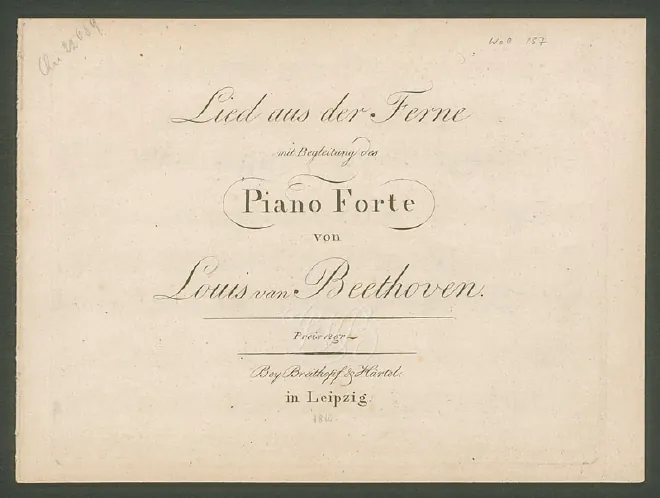 WoO 137
Lied aus der Ferne
mit Begleitung des
Piano Forte
von
Louis van Beethoven.
Preis 12 gr
Bey Breitkopf & Härtel
in Leipzig.
1810.